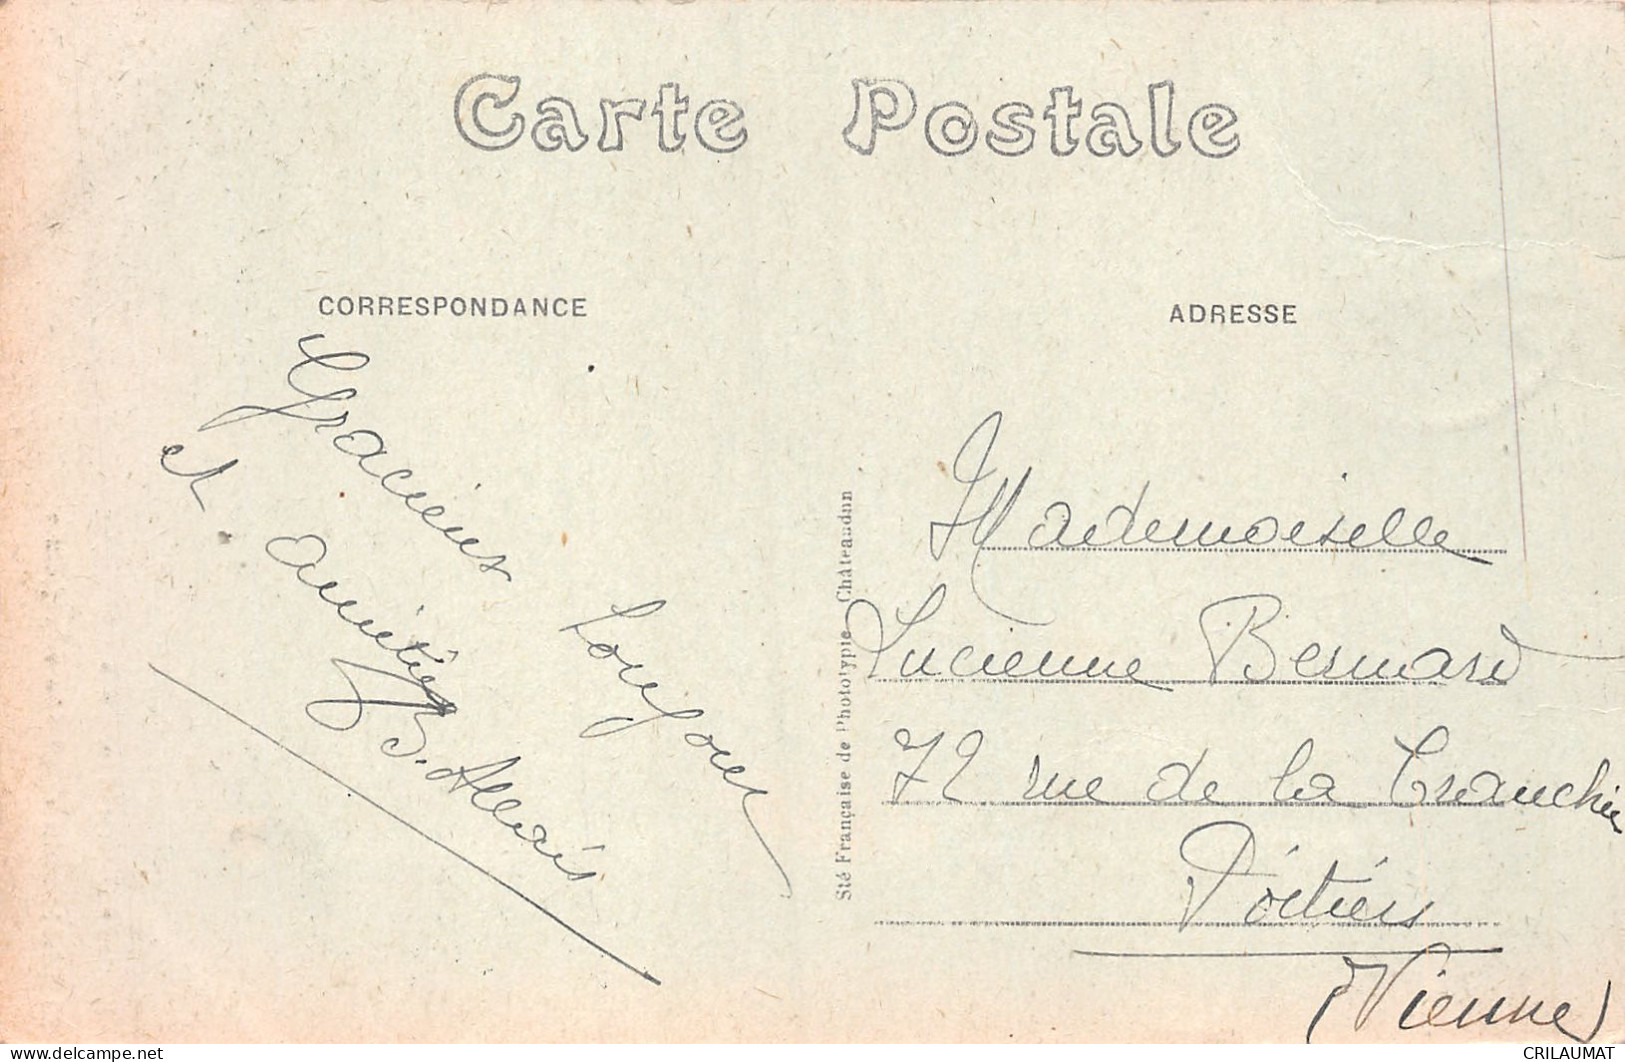 Carte Postale
CORRESPONDANCE
ADRESSE
Gracieux bonjour
et amitiés
B. Allais
Sté Française de Phototypie Châteaudun
Mademoiselle
Lucienne Bernard
72 rue de la Tranchée
Poitiers
(Vienne)
CRILAUMAT